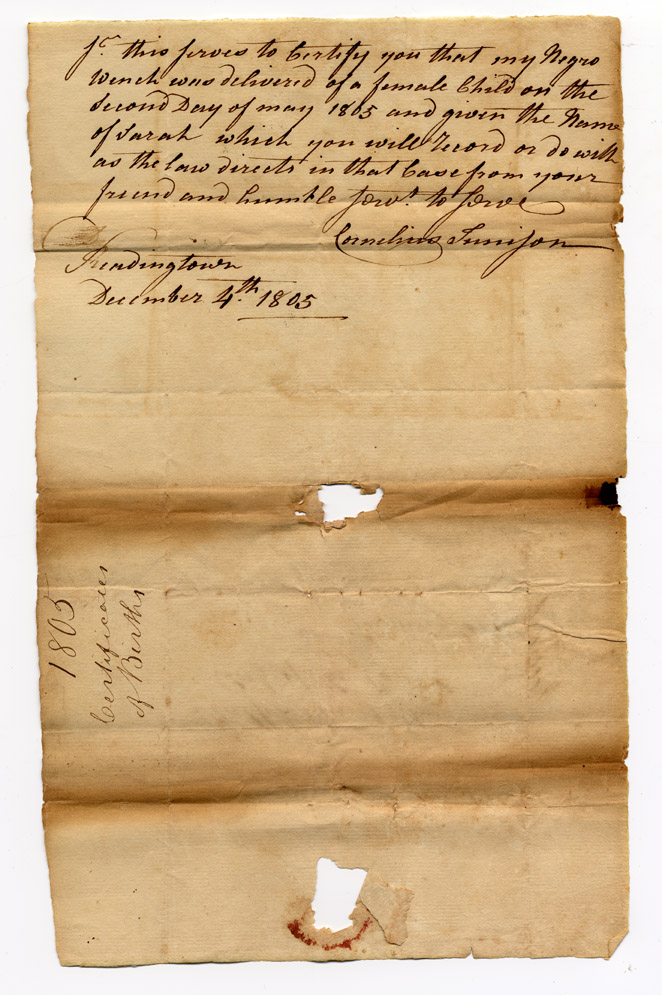 Sr. this serves to Certify you that my Negro
Wench was delivered of a female Child on the
Second Day of may 1805 and given the Name
of Sarah which you will Record or do with
as the law directs in that Case from your
friend and humble Servt. to Serve
Cornelius Tunison
Readingtown
December 4th 1805
1805
Certificates
of Births